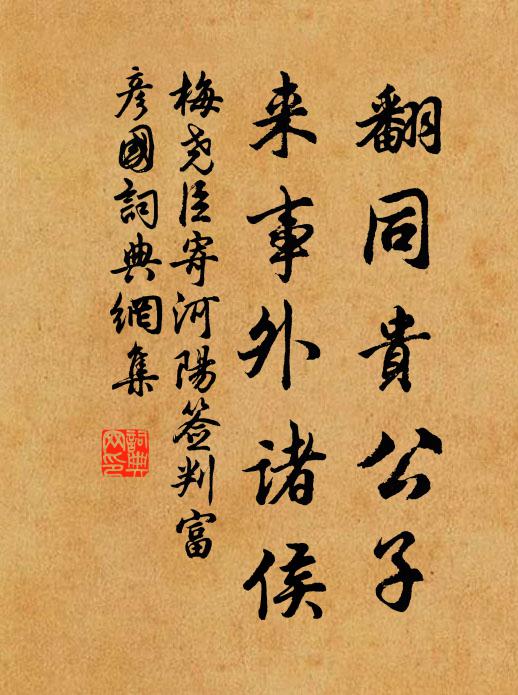 翻同貴公子
来事外諸侯
梅尧臣寄河陽签判富
彦國詞典網集
詞典網印